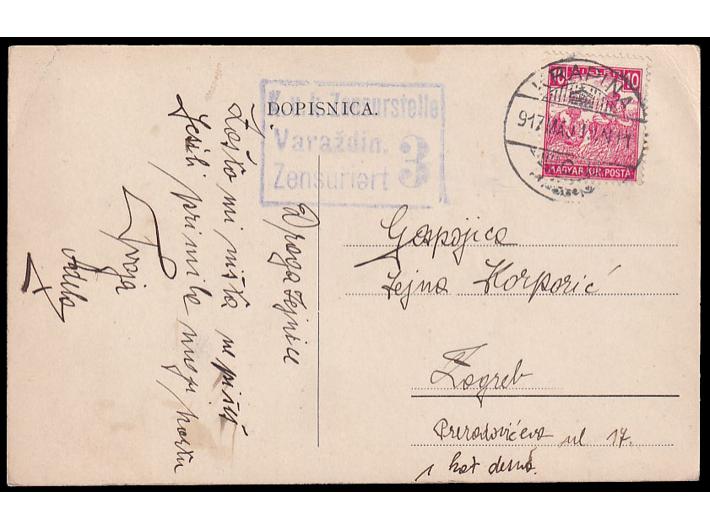 DOPISNICA.
K. u. k. Zensurstelle
Varaždin.
Zensuriert 3
KRAPINA
917 MAJ
10 10
MAGYAR KIR. POSTA
Draga Tejnice
Zašto mi ništa ne pišeš
Jesili primila moju kartu
Tvoja
Adela
Gospojica
Tejna Korporić
Zagreb
Preradovićeva ul 17.
1 kat desno.